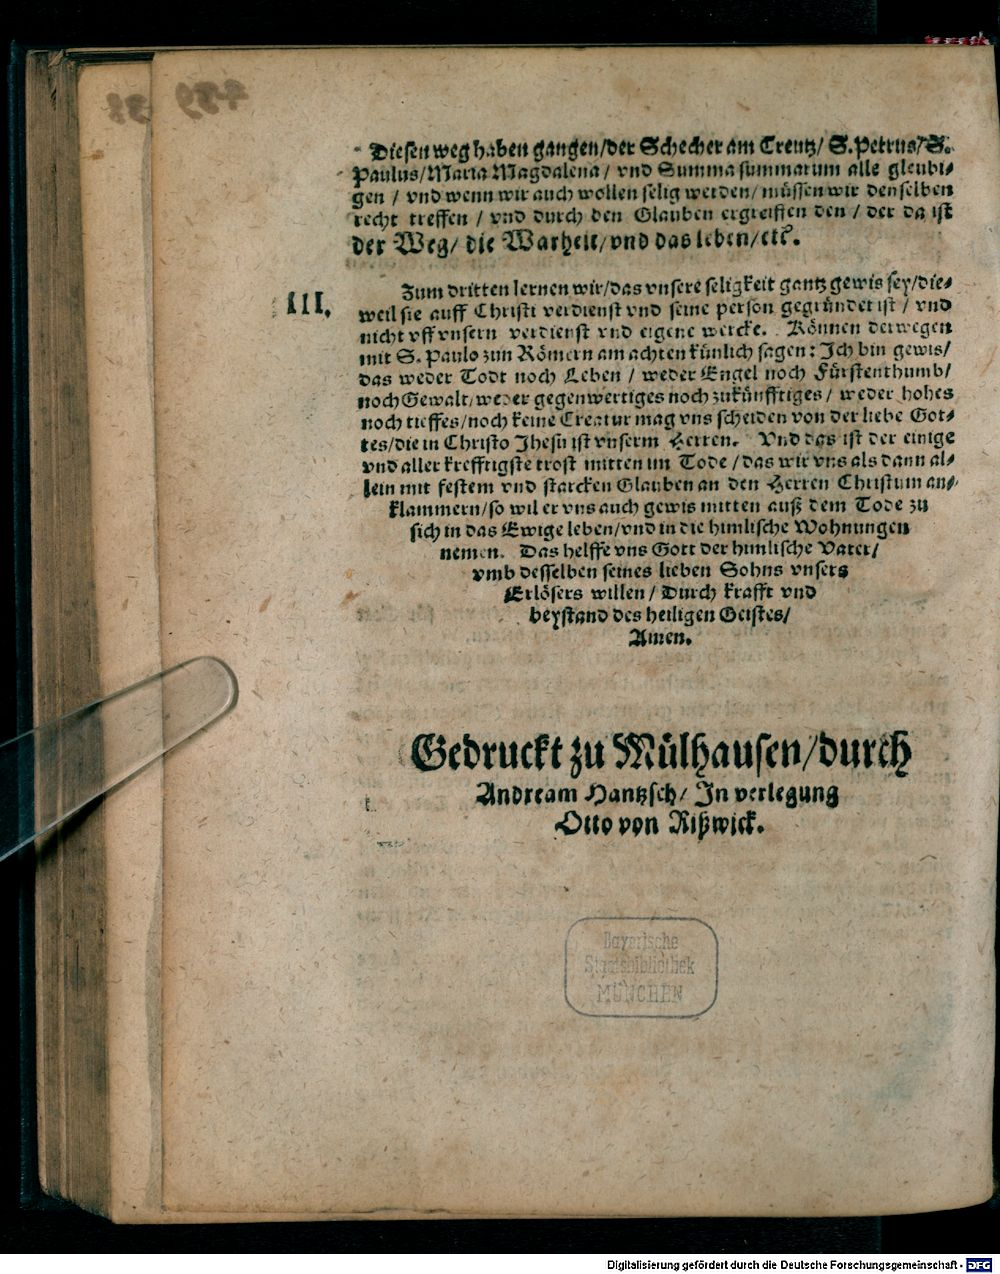 Diesen weg haben gangen/der Schecher am Creutz/ S. Petrus/S.
Paulus/Maria Magdalena/ vnd Summa summarum alle gleubi-
gen / vnd wenn wir auch wollen selig werden/ müssen wir denselben
recht treffen / vnd durch den Glauben ergreiffen den / der da ist
der Weg/ die Warheit/vnd das leben/etc.
III.
Zum dritten lernen wir/das vnsere seligkeit gantz gewis sey/die-
weil sie auff Christi verdienst vnd seine person gegründet ist / vnd
nicht vff vnsern verdienst vnd eigene wercke. Können derwegen
mit S. Paulo zun Römern am achten künlich sagen: Ich bin gewis/
das weder Todt noch Leben / weder Engel noch Fürstenthumb/
noch Gewalt/weder gegenwertiges noch zukünfftiges / weder hohes
noch tieffes/noch keine Creatur mag vns scheiden von der liebe Got-
tes/die in Christo Jhesu ist vnserm Herren. Vnd das ist der einige
vnd aller krefftigste trost mitten im Tode /das wir vns als dann al-
lein mit festem vnd starcken Glauben an den Herren Christum an-
klammern/so wil er vns auch gewis mitten auß dem Tode zu
sich in das Ewige leben/vnd in die himlische Wohnungen
nemen. Das helffe vns Gott der himlische Vater/
vmb desselben seines lieben Sohns vnsers
Erlösers willen / Durch krafft vnd
beystand des heiligen Geistes/
Amen.
Gedruckt zu Mülhausen/durch
Andream Hantzsch/ In verlegung
Otto von Rißwick.
Bayerische
Staatsbibliothek
MÜNCHEN
Digitalisierung gefördert durch die Deutsche Forschungsgemeinschaft - DFG